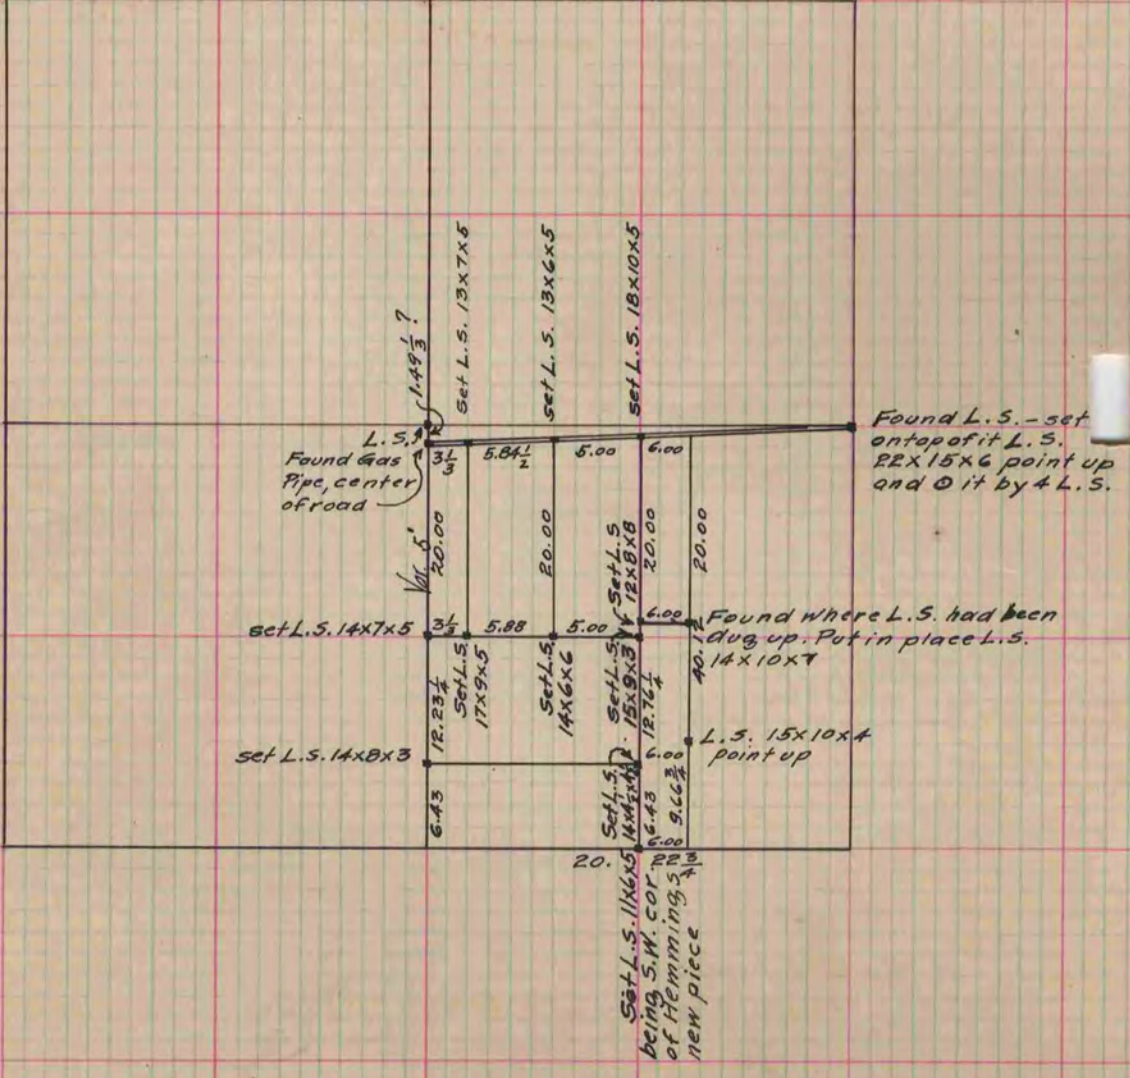 1.49 1/3 ?
Set L.S. 13x7x5
Set L.S. 13x6x5
Set L.S. 18x10x5
L.S.
Found Gas
Pipe, center
of road
3 1/3
5.84 1/2
5.00
6.00
Found L.S. - set
on top of it L.S.
22x15x6 point up
and ⊙ it by 4 L.S.
Var. 5'
20.00
20.00
Set L.S.
12x8x8
20.00
20.00
set L.S. 14x7x5
3 1/3
5.88
5.00
6.00
Found where L.S. had been
dug up. Put in place L.S.
14x10x7
Set L.S.
17x9x5
Set L.S.
14x6x6
Set L.S.
15x9x3
12.23 1/4
12.76 1/4
40.12
set L.S. 14x8x3
6.00
L.S. 15x10x4
point up
Set L.S.
6.43
6.43
9.66 3/4
6.00
20.
22 3/4
Set L.S. 11x6x5
being S.W. cor.
of Hemmings
new piece